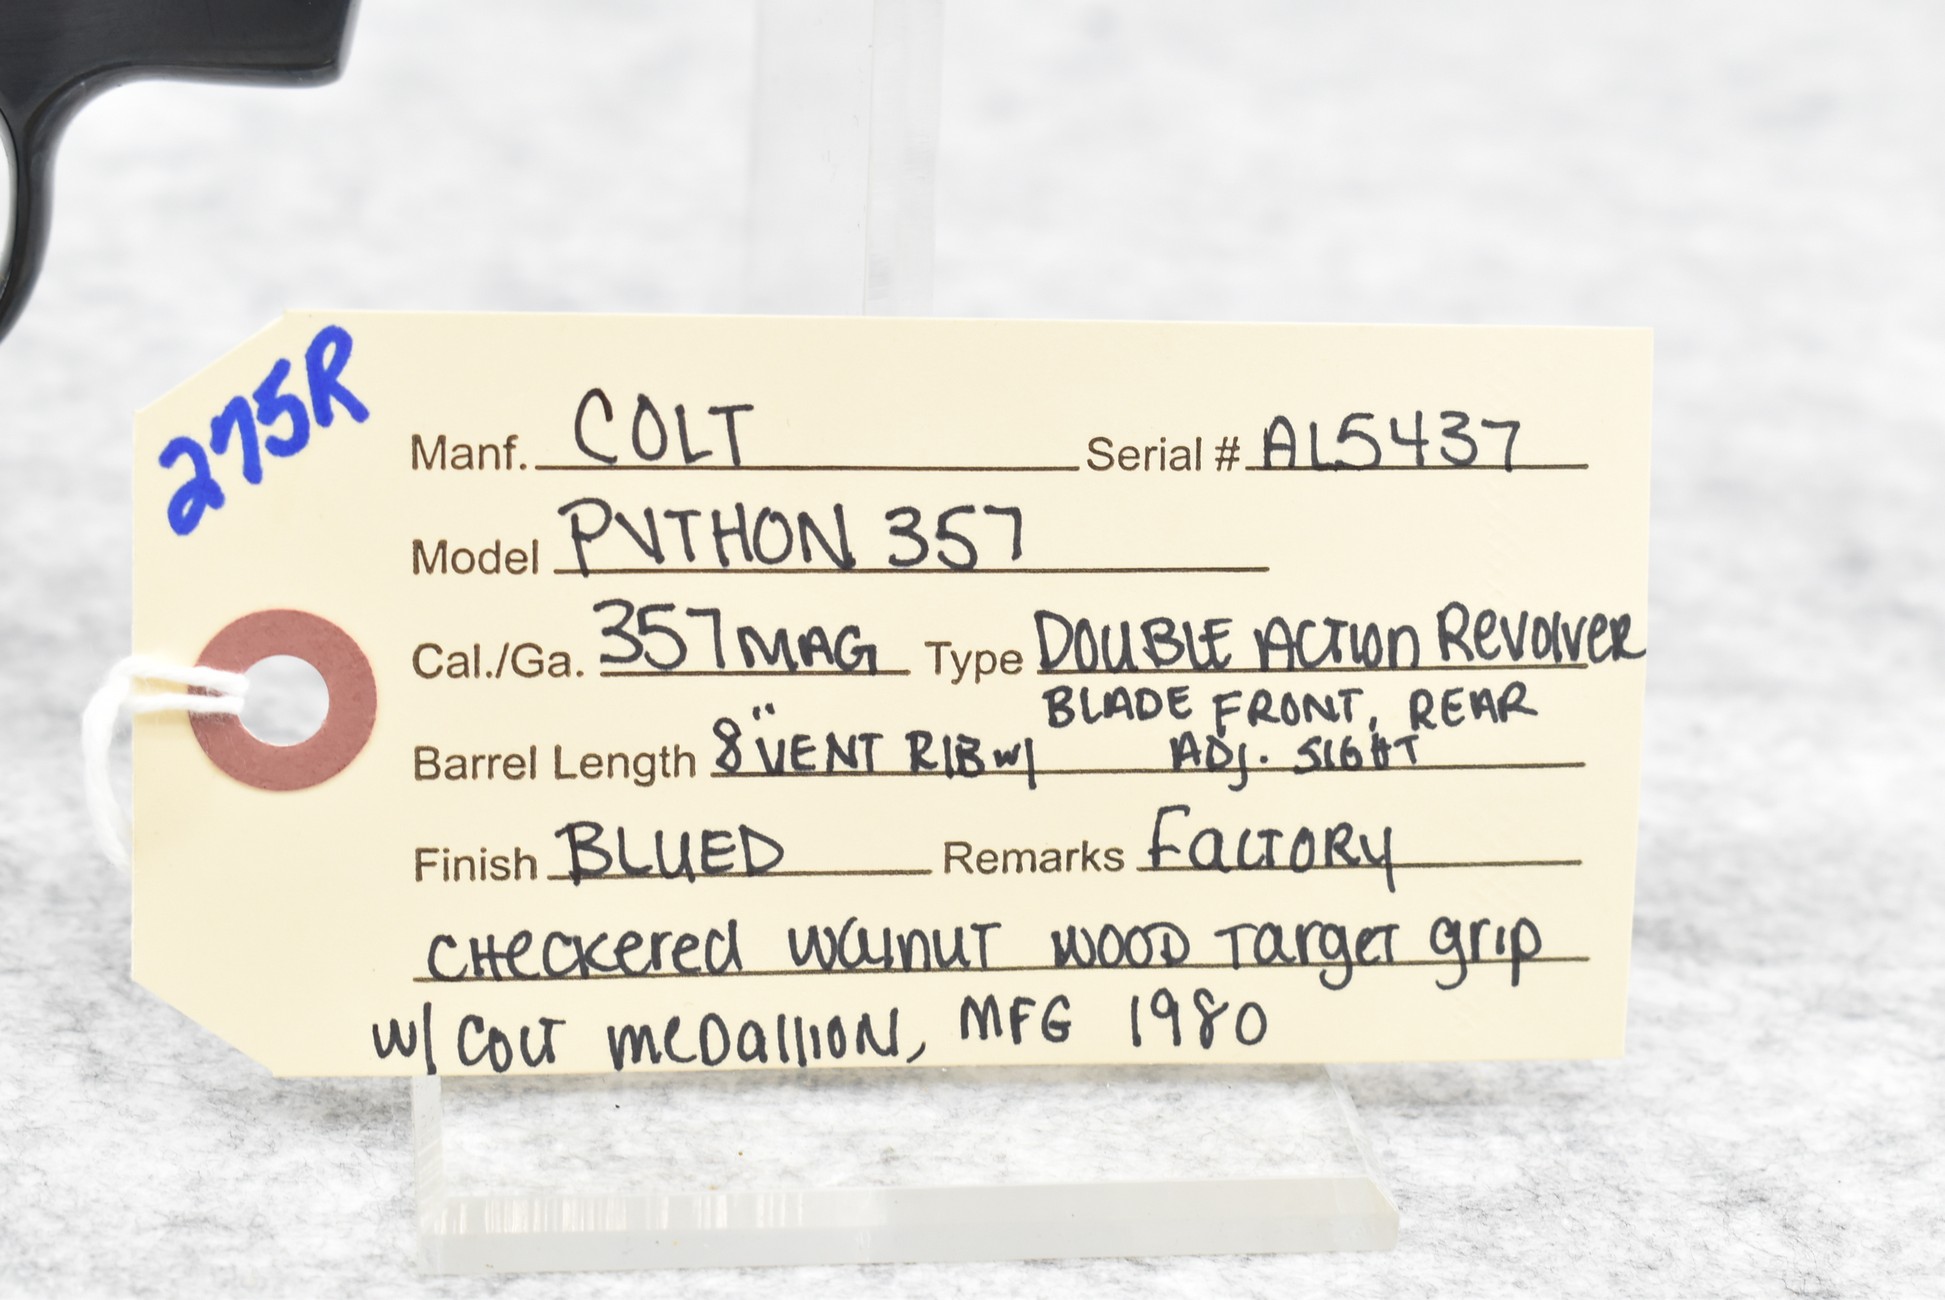 275R
Manf. COLT Serial # AL5437
Model PYTHON 357
Cal./Ga. 357 MAG Type DOUBLE ACTION REVOLVER
BLADE FRONT, REAR
Barrel Length 8" VENT RIB w/ ADJ. SIGHT
Finish BLUED Remarks FACTORY
CHeckered walnuT WOOD TargeT grip
w/ COLT meDallION, MFG 1980